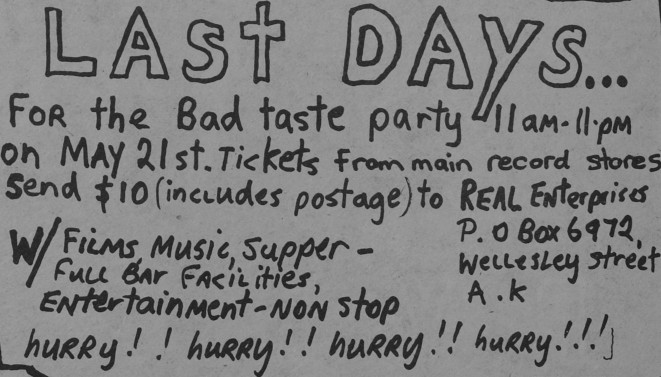 LASt DAYS...
FoR the Bad taste party 11am-11·pm
on MAY 21st. Tickets from main record stores
Send $10 (includes postage) to REAL Enterprises
P. O Box 6972,
Wellesley street
A.k
W/ Films, Music, Supper -
Full Bar Facilities,
Entertainment - NoN stop
huRRy! ! huRRy!! huRRy!!! huRRy!!!!